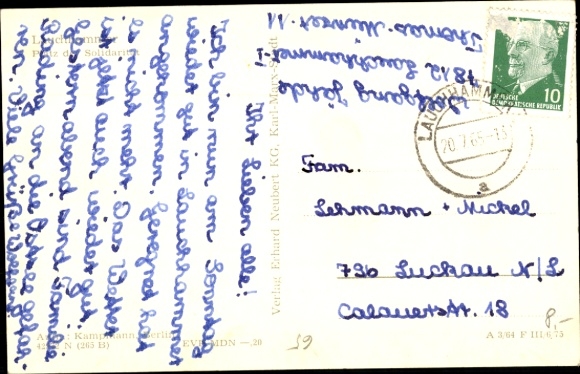 Lauchhammer
Platz der Solidarität
Ihr Lieben alle!
Ich bin nun am Sonntag
wieder gut in Lauchhammer
angekommen. Geregnet hat
es nicht mehr. Das Wetter
ist jetzt auch wieder gut.
Gestern abend sind Familie
an die Ostsee gefah-
ren. Viele Grüße
Wolfgang Jähde
7812 Lauchhammer-
Thomas Münzer 11
Verlag Erhard Neubert KG, Karl-Marx-Stadt
DEUTSCHE
DEMOKRATISCHE REPUBLIK
10
LAUCHHAMMER
20.7.65
a
Fam.
Lehmann + Nickel
796 Luckau N/L
Calauerstr. 18
8,-
59
Kampmann, Berlin
N (265 B)
EVP MDN -,20
A 3/64 F III/6/75